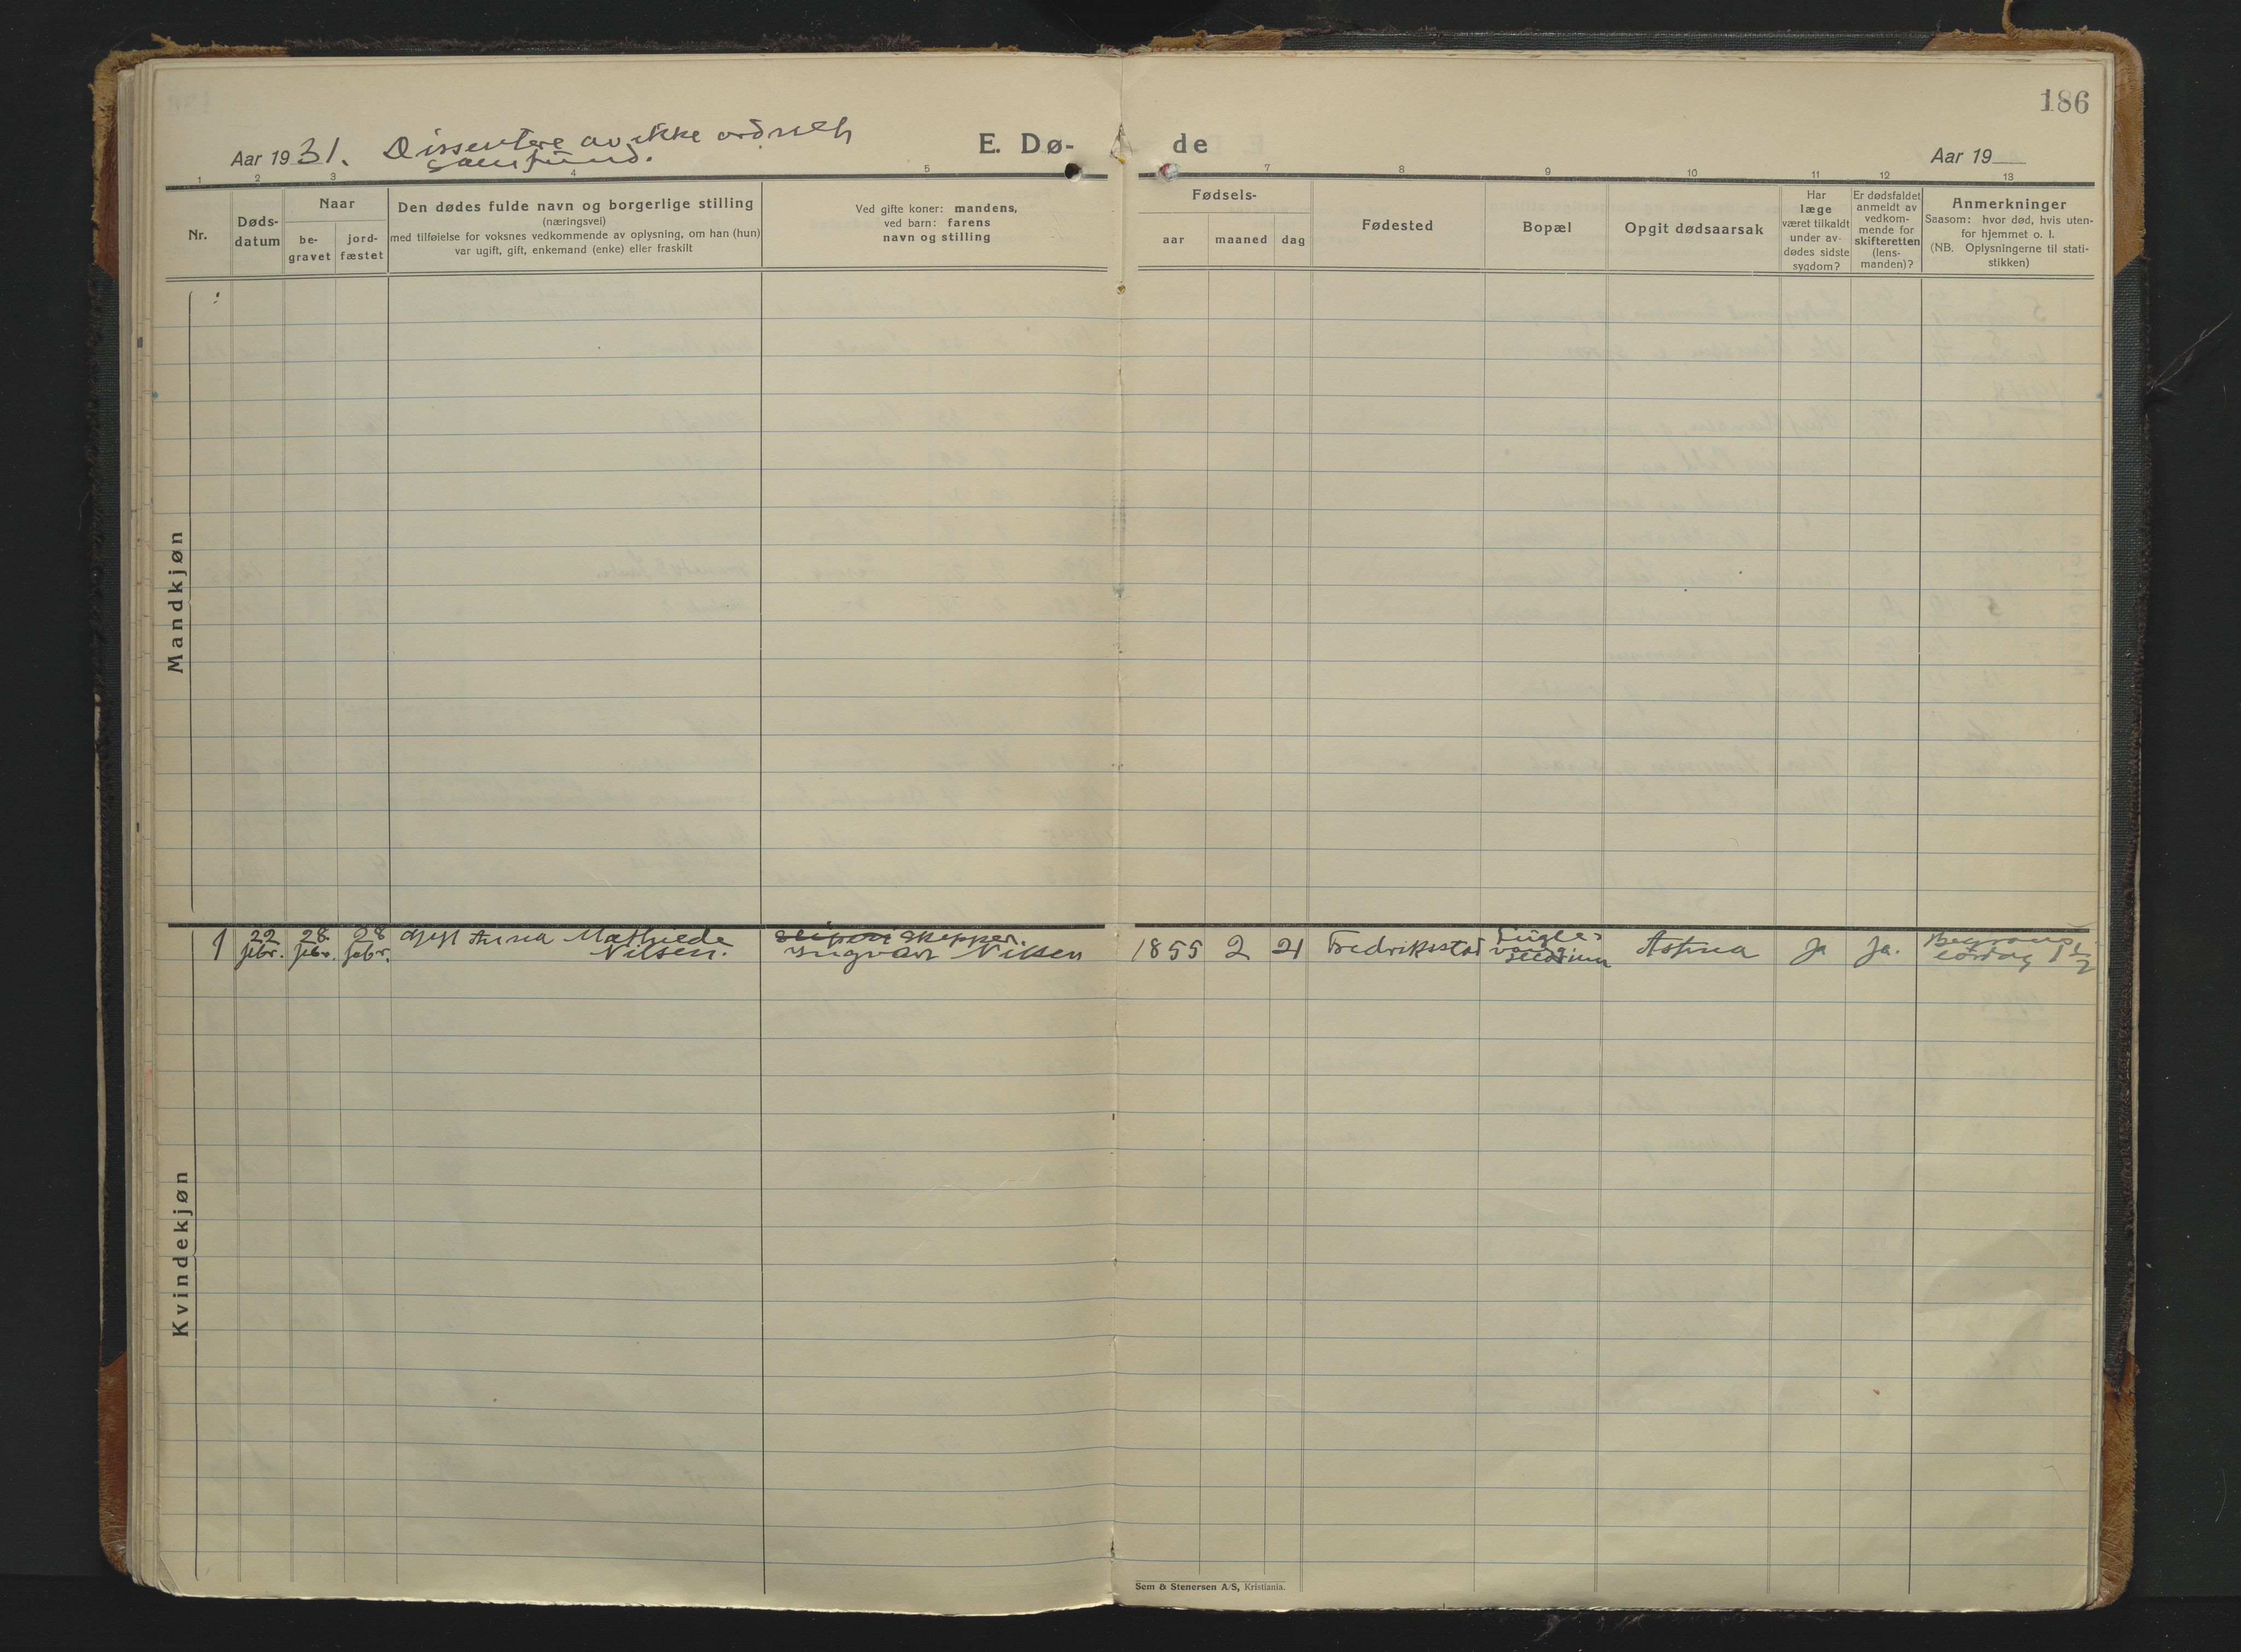 186
Aar 1931. Dissentere av ikke ordnet
samfund.
E. Dø-
de
Aar 19
1 2 3 4 5 7 8 9 10 11 12 13
Nr.
Døds-
datum
Naar
be-
gravet
jord-
fæstet
Den dødes fulde navn og borgerlige stilling
(næringsvei)
med tilføielse for voksnes vedkommende av oplysning, om han (hun)
var ugift, gift, enkemand (enke) eller fraskilt
Ved gifte koner: mandens,
ved barn: farens
navn og stilling
Fødsels-
aar maaned dag
Fødested
Bopæl
Opgit dødsaarsak
Har
læge
været tilkaldt
under av-
dødes sidste
sygdom?
Er dødsfaldet
anmeldt av
vedkom-
mende for
skifteretten
(lens-
manden)?
Anmerkninger
Saasom: hvor død, hvis uten-
for hjemmet o. l.
(NB. Oplysningerne til stati-
stikken)
Mandkjøn
Kvindekjøn
1
22
febr.
28
febr.
28
febr.
Anna Mathilde
Nilsen.
Skepper.
Yngvar Nilsen
1855 2 21 Fredriksstad
Fugle-
vang.
Astma ja ja.
lørdag
Sem & Stenersen A/S, Kristiania.